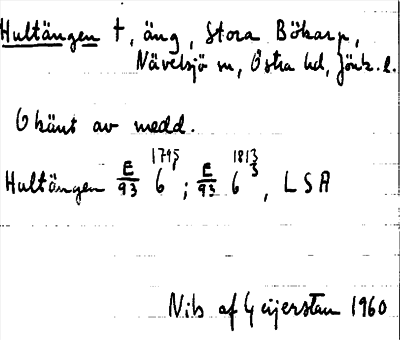 Hultängen t, äng, Stora Bökarp,
Nävelsjö sn, Östra hd, Jönk. l.
Okänt av medd.
1795 1813
Hultängen E/93 6 ; E/93 6 3, LSA
Nils af Geijerstam 1960